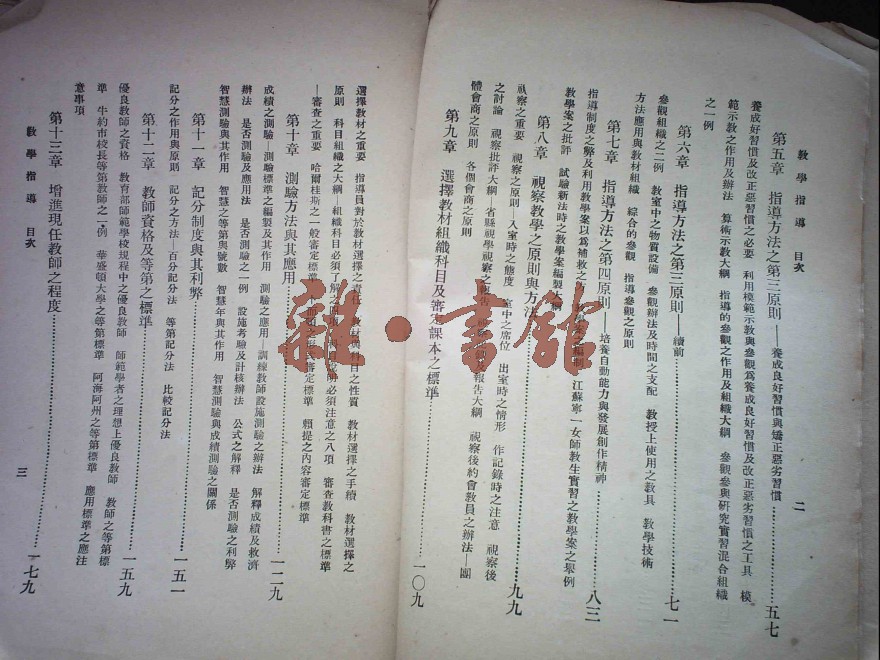 教學指導 目次 二
第五章 指導方法之第三原則——養成良好習慣與矯正惡劣習慣…………五七
養成好習慣及改正惡習慣之必要 利用模範示教與參觀爲養成良好習慣及改正惡劣習慣之工具 模
範示教之作用及辦法 算術示教大綱 指導的參觀之作用及組織大綱 參觀參與研究實習混合組織
之一例
第六章 指導方法之第三原則——續前…………七一
參觀組織之二例 教室中之物質設備 參觀辦法及時間之支配 教授上使用之教具 教學技術
方法應用與教材組織 綜合的參觀 指導參觀之原則
第七章 指導方法之第四原則——培養自動能力與發展創作精神…………八三
指導制度之弊及利用教學案以爲補救之 教學案之編制 江蘇寧一女師教生實習之教學案之舉例
教學案之批評 試驗新法時之教學案編製大綱
第八章 視察教學之原則與方法…………九九
視察之重要 視察之原則—入室時之態度 室中之席位 出室時之情形 作記錄時之注意 視察後
之討論 視察批評大綱—省縣視學視察之報告 及報告大綱 視察後約會教員之辦法—團
體會商之原則 各個會商之原則
第九章 選擇教材組織科目及審定課本之標準…………一〇九
選擇教材之重要 指導員對於教材選擇之責任 教材與科目之性質 教材選擇之手續 教材選擇之
原則 科目組織之大綱—組織科目必須了解之 科目說明必須注意之八項 審查教科書之標準
—審查之重要 哈爾桂斯之一般審定標準 審定標準 賴提之內容審定標準
第十章 測驗方法與其應用…………一二九
成績之測驗—測驗標準之編製及其作用 測驗之應用—訓練教師設施測驗之辦法 解釋成績及救濟
辦法 是否測驗及應用法 是否測驗之一例 設施考驗及計核辦法 公式之解釋 是否測驗之利弊
智慧測驗與其作用 智慧之等第與號數 智慧年與其作用 智慧測驗與成績測驗之關係
第十一章 記分制度與其利弊…………一五一
記分之作用與原則 記分之方法—百分記分法 等第記分法 比較記分法
第十二章 教師資格及等第之標準…………一五九
優良教師之資格 教育部師範學校規程中之優良教師 師範學者之理想上優良教師 教師之等第標
準 牛約市校長等第教師之一例 華盛頓大學之等第標準 阿海阿州之等第標準 應用標準之應注
意事項
第十三章 增進現任教師之程度…………一七九
教學指導 目次 三
雜·書館